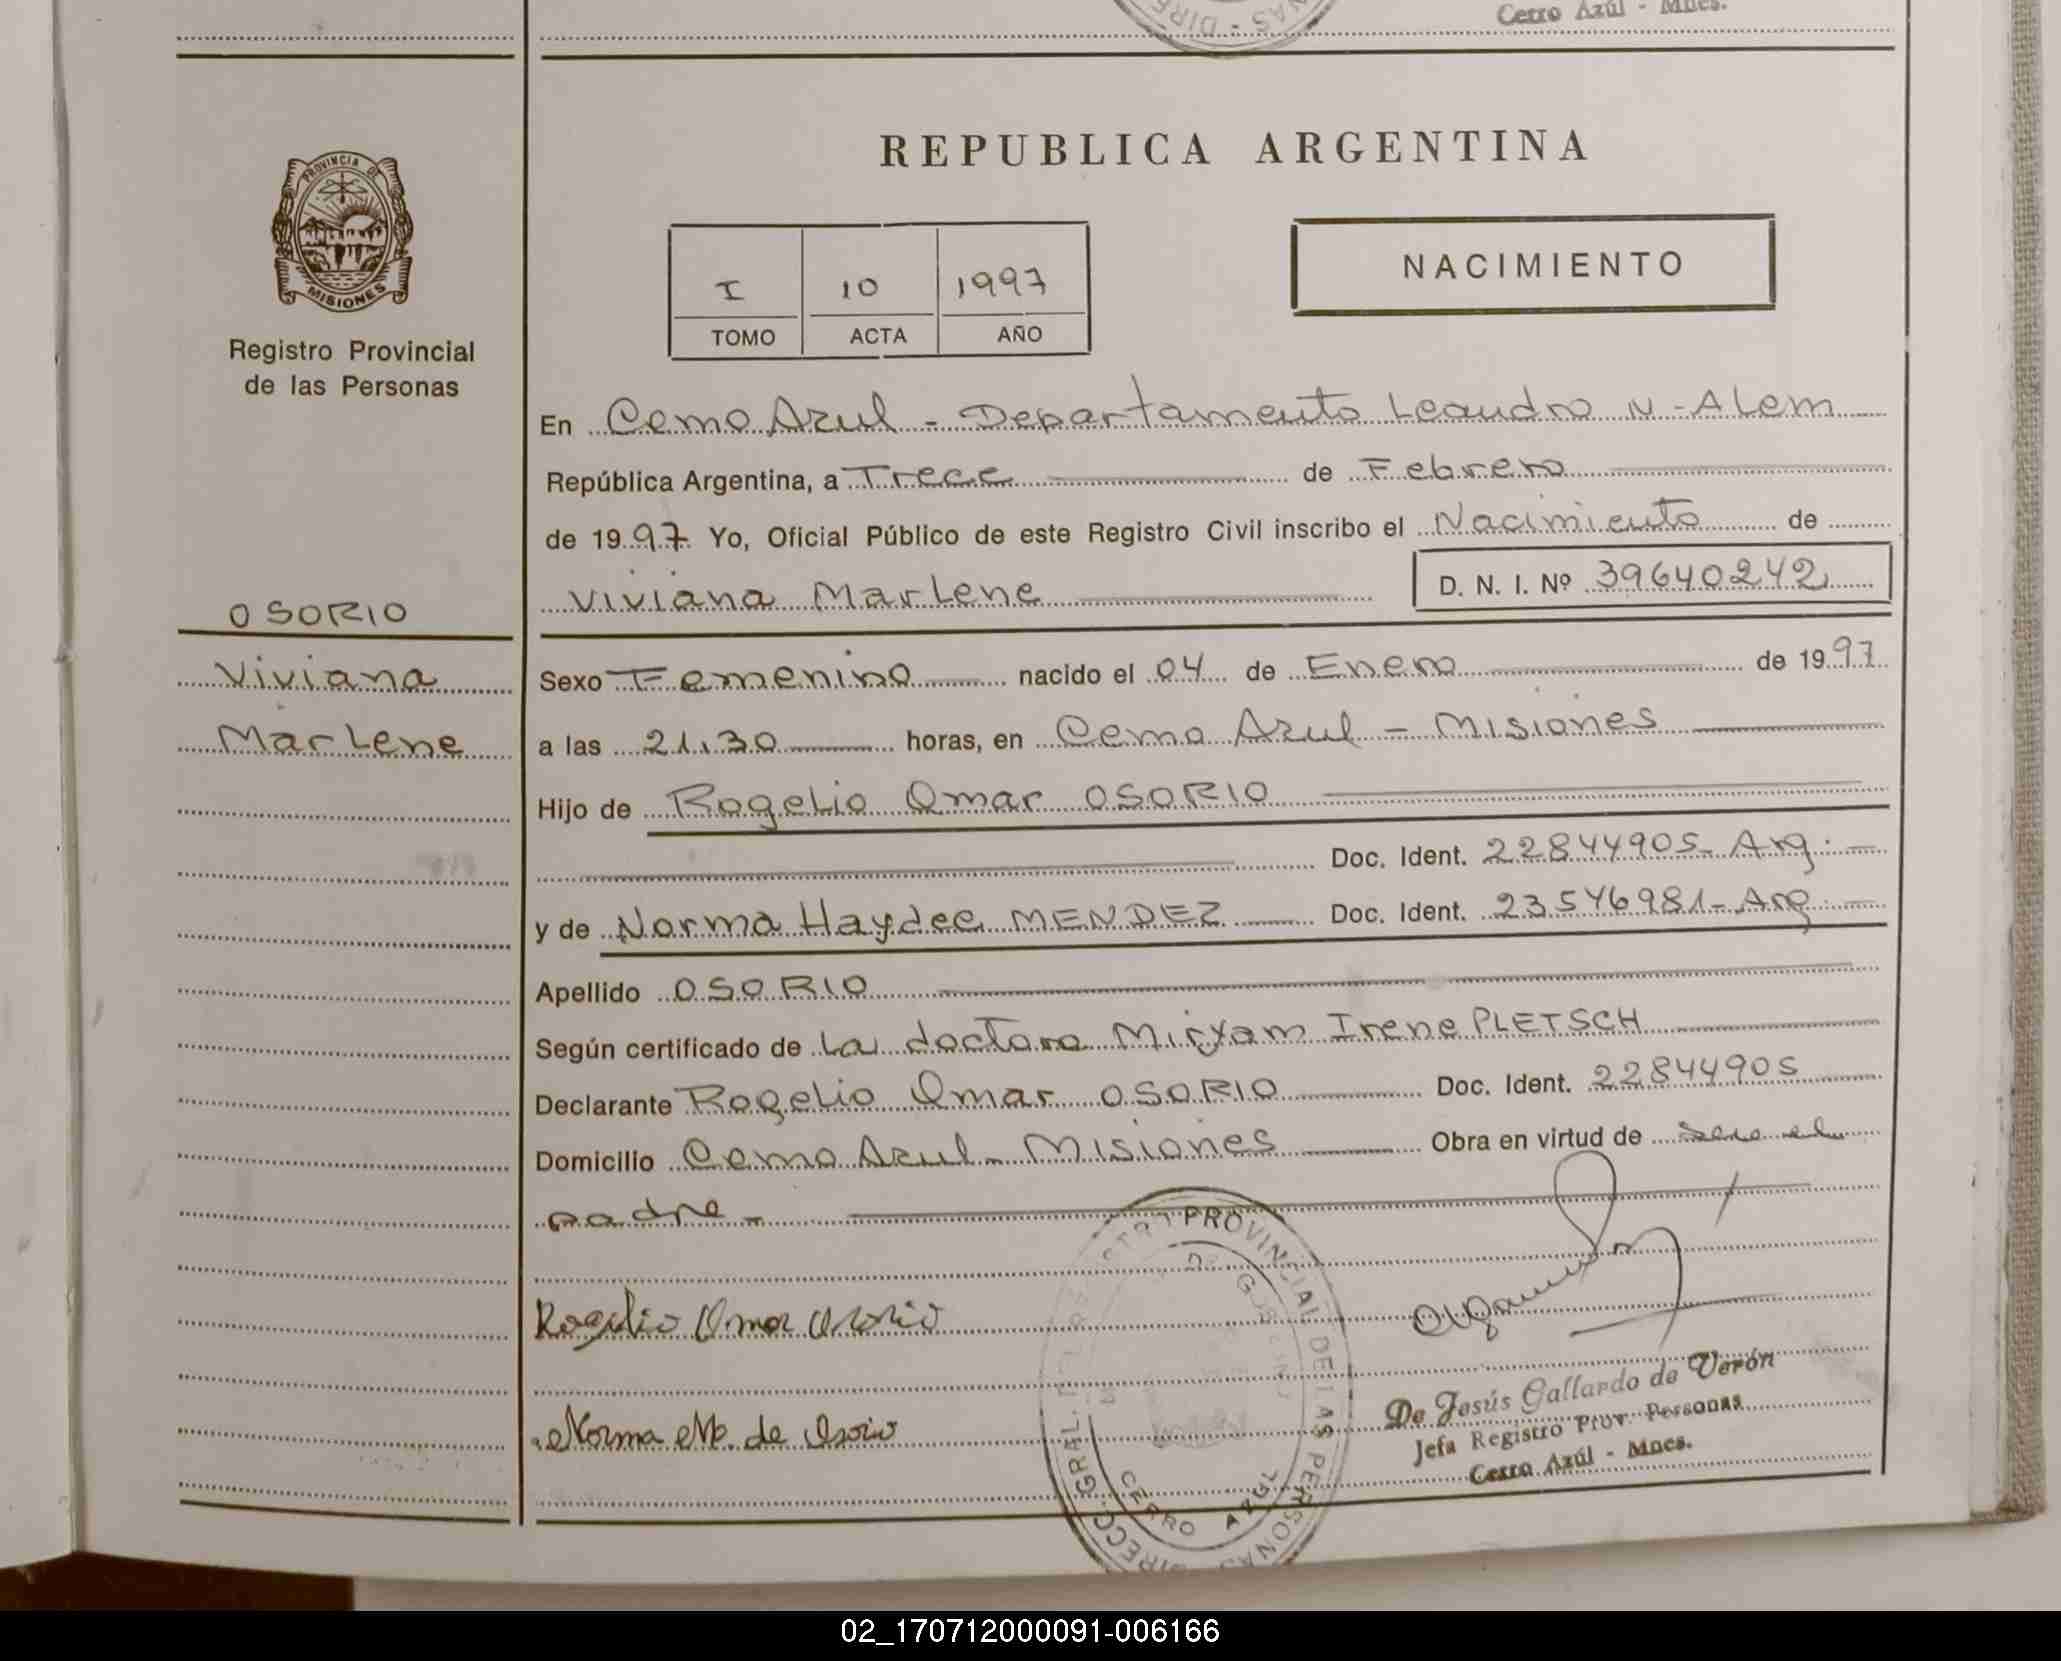 Cerro Azúl - Mnes.
PROVINCIA DE
MISIONES
Registro Provincial
de las Personas
OSORIO
Viviana
Marlene
REPUBLICA ARGENTINA
I 10 1997
TOMO ACTA AÑO
NACIMIENTO
En Cerro Azul - Departamento Leandro N-Alem
República Argentina, a Trece de Febrero
de 1997 Yo, Oficial Público de este Registro Civil inscribo el Nacimiento de
Viviana Marlene D. N. I. Nº 39640242
Sexo Femenino nacido el 04 de Enero de 1997
a las 21.30 horas, en Cerro Azul - Misiones
Hijo de Rogelio Omar OSORIO
Doc. Ident. 22844905- Arg. -
y de Norma Haydee MENDEZ Doc. Ident. 23546981- Arg. -
Apellido OSORIO
Según certificado de la doctora Miryam Irene PLETSCH
Declarante Rogelio Omar OSORIO Doc. Ident. 22844905
Domicilio Cerro Azul - Misiones Obra en virtud de ser el
padre -
Rogelio Omar Osorio
Norma M. de Osorio
DIRECC. GRAL. PROVINCIAL DE LAS PERSONAS
CERRO AZUL
De Jesús Gallardo de Verón
Jefa Registro Prov. Personas
Cerro Azúl - Mnes.
02_170712000091-006166